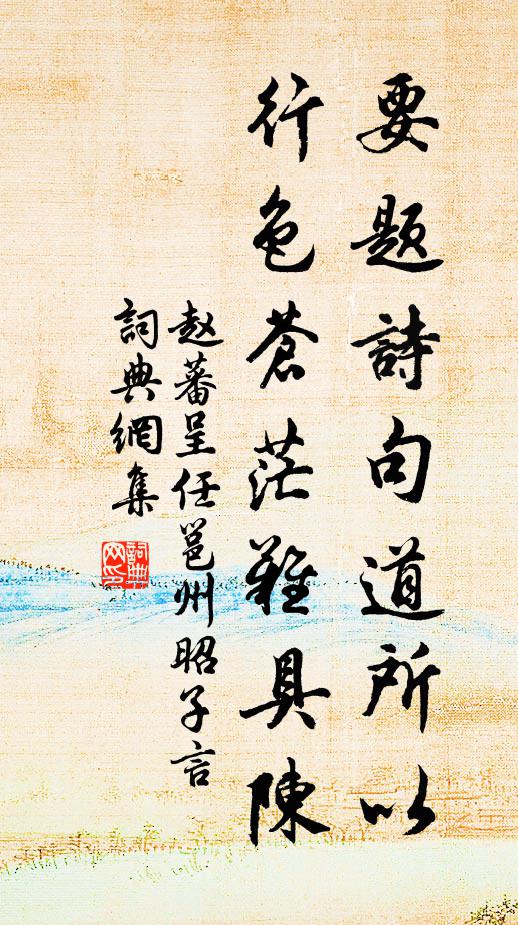 要题詩句道所以
行色蒼茫難具陳
赵蕃呈任邕州昭子言
詞典網集
詞典網印